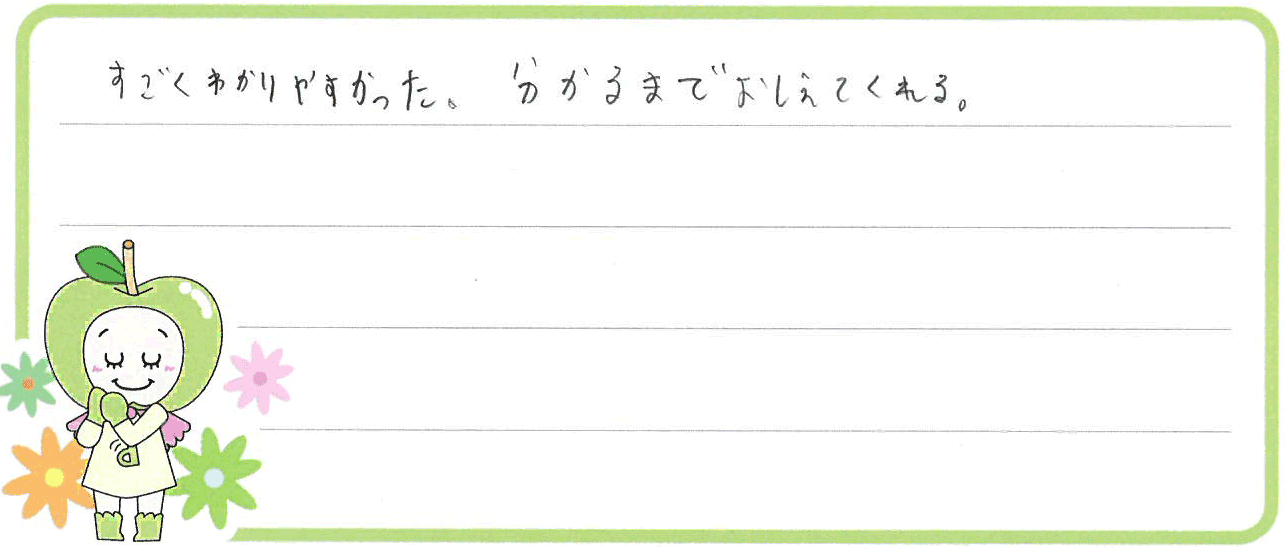 すごくわかりやすかった。 分かるまでおしえてくれる。